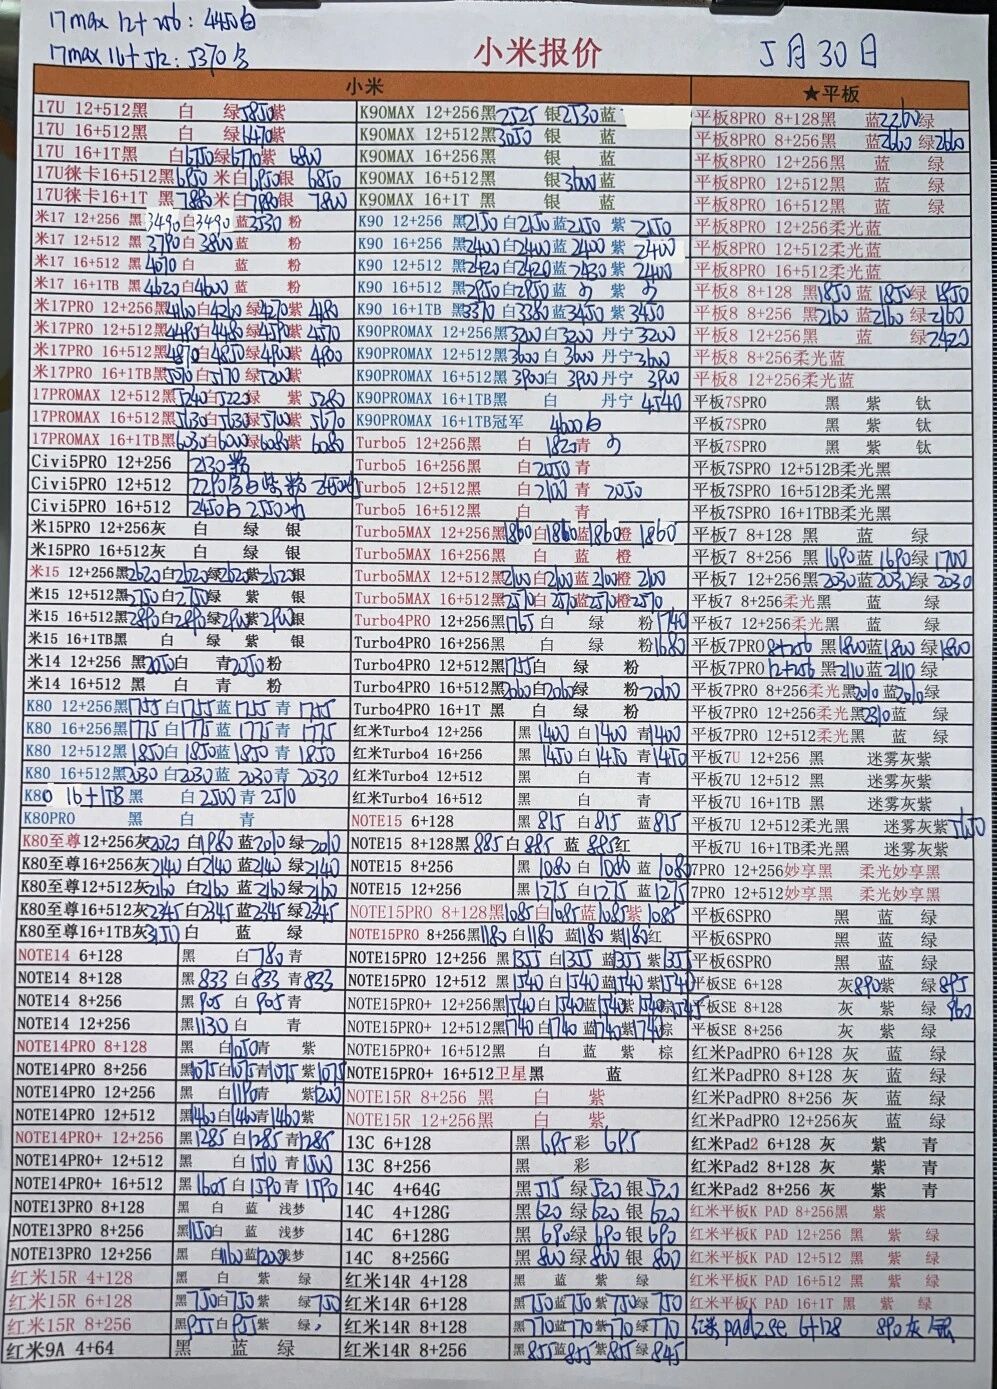 17max 12+256: 4450白
17max 16+512: 5370白
小米报价
5月30日
小米
★平板
17U 12+512黑 白 绿5850紫
17U 16+512黑 白 绿6470紫
17U 16+1T黑 白6750绿6770紫 6800
17U徕卡16+512黑6850 米白6850银 6850
17U徕卡16+1T 黑7880米白7880银 7800
米17 12+256 黑3490白3490蓝3530 粉
米17 12+512 黑3790白3800蓝 粉
米17 16+512 黑4070白 蓝 粉
米17 16+1TB 黑4620白4600蓝 粉
米17PRO 12+256黑4160白4260绿4270紫4180
米17PRO 12+512黑4490白4480绿4590紫4570
米17PRO 16+512黑4870白4850绿4900紫4800
米17PRO 16+1TB黑5070白5170绿5200紫
17PROMAX 12+512黑5240白5220绿 紫5280
17PROMAX 16+512黑5630白5630绿5700紫5670
17PROMAX 16+1TB黑6030白6000绿6080紫6080
Civi5PRO 12+256 2130紫
Civi5PRO 12+512
Civi5PRO 16+512
米15PRO 12+256灰 白 绿 银
米15PRO 16+512灰 白 绿 银
米15 12+256黑2620白2620绿2620紫2620银
米15 12+512黑2750白2750绿 紫 银
米15 16+512黑2890白2890绿2900紫2900银
米15 16+1TB黑 白 绿 紫 银
米14 12+256 黑2050白 青2050粉
米14 16+512 黑 白 青 粉
K80 12+256黑1755白1755蓝1755青 1755
K80 16+256黑1775白1775蓝1775青 1775
K80 12+512黑1850白1850蓝1850青 1850
K80 16+512黑2030白2030蓝 2030青 2030
K80 16+1TB 黑 白 2500青 2510
K80PRO 黑 白 青
K80至尊12+256灰2020 白1980蓝2010绿2010
K80至尊16+256灰2140白2140蓝2140绿2140
K80至尊12+512灰2160白2160蓝2160绿2160
K80至尊16+512灰2345白2345蓝2345绿2345
K80至尊16+1TB灰 白 蓝 绿
NOTE14 6+128 黑 白780青
NOTE14 8+128 黑833白833青833
NOTE14 8+256 黑905白905青
NOTE14 12+256 黑1130白 青
NOTE14PRO 8+128 黑 白1050青 紫
NOTE14PRO 8+256 黑1075白1075青1075紫1075
NOTE14PRO 12+256 黑 白1190青 紫1200
NOTE14PRO 12+512 黑1460白1460青1460紫
NOTE14PRO+ 12+256 黑1285白1285青1285
NOTE14PRO+ 12+512 黑 白1510青1500
NOTE14PRO+ 16+512 黑1605白1590青1590
NOTE13PRO 8+128 黑 白 蓝 浅梦
NOTE13PRO 8+256 黑1150白 蓝 浅梦
NOTE13PRO 12+256 黑 白1160蓝1200浅梦
红米15R 4+128 黑 白 紫 绿
红米15R 6+128 黑750白750紫 绿750
红米15R 8+256 黑955白955紫 绿
红米9A 4+64 黑 蓝 绿
K90MAX 12+256黑2525 银2530蓝
K90MAX 12+512黑3050 银 蓝
K90MAX 16+256黑 银 蓝
K90MAX 16+512黑 银3600蓝
K90MAX 16+1T黑 银 蓝
K90 12+256 黑2150白2150蓝2150 紫 2150
K90 16+256 黑2400白2400蓝2400 紫 2400
K90 12+512 黑2420白2420蓝2430 紫 2400
K90 16+512 黑2850白2850蓝 紫
K90 16+1TB 黑3370白3380蓝3450紫3450
K90PROMAX 12+256黑3200白3200 丹宁 3200
K90PROMAX 12+512黑3600白 3600丹宁 3600
K90PROMAX 16+512黑3900白 3900丹宁 3900
K90PROMAX 16+1TB黑 白 丹宁 4540
K90PROMAX 16+1TB冠军 4600白
Turbo5 12+256黑 白 1820青
Turbo5 16+256黑 白2050青
Turbo5 12+512黑 白2100青 2050
Turbo5 16+512黑 白 青
Turbo5MAX 12+256黑1860白1860蓝1860橙 1860
Turbo5MAX 16+256黑 白 蓝 橙
Turbo5MAX 12+512黑2100白2100蓝2100橙 2100
Turbo5MAX 16+512黑2570白2570蓝2570橙2570
Turbo4PRO 12+256黑1765 白 绿 粉1740
Turbo4PRO 16+256黑 白 绿 粉1680
Turbo4PRO 12+512黑1755白 绿 粉
Turbo4PRO 16+512黑2060白2060绿 粉2060
Turbo4PRO 16+1T 黑 白 绿 粉
红米Turbo4 12+256 黑1400 白1400 青1400
红米Turbo4 16+256 黑1450白1450 青1450
红米Turbo4 12+512 黑 白 青
红米Turbo4 16+512 黑 白 青
NOTE15 6+128 黑815白815蓝815
NOTE15 8+128黑885白885 蓝885红
NOTE15 8+256 黑1080 白1080 蓝1080
NOTE15 12+256 黑1275 白1275 蓝1275
NOTE15PRO 8+128黑1085白1085蓝1085紫1085
NOTE15PRO 8+256黑1180白1180 蓝1180紫1180红
NOTE15PRO 12+256 黑1355白1355蓝1355紫1355
NOTE15PRO 12+512 黑1540白1540蓝1540紫1540
NOTE15PRO+ 12+256黑1540白1540蓝1540紫1540棕1545
NOTE15PRO+ 12+512黑1740白1740蓝1740紫1740棕
NOTE15PRO+ 16+512黑 白 蓝 紫 棕
NOTE15PRO+ 16+512卫星黑 蓝
NOTE15R 8+256 黑 白 紫
NOTE15R 12+256 黑 白 紫
13C 6+128 黑695彩695
13C 8+256 黑 彩
14C 4+64G 黑515绿520银520
14C 4+128G 黑620绿620银620
14C 6+128G 黑690绿690银690
14C 8+256G 黑800绿800银800
红米14R 4+128 黑 蓝 紫 绿
红米14R 6+128 黑750蓝750紫750绿750
红米14R 8+128 黑770蓝770紫770绿770
红米14R 8+256 黑855蓝855紫855绿845
平板8PRO 8+128黑 蓝2260绿
平板8PRO 8+256黑 蓝2660绿2660
平板8PRO 12+256黑 蓝 绿
平板8PRO 12+512黑 蓝 绿
平板8PRO 16+512黑 蓝 绿
平板8PRO 12+256柔光蓝
平板8PRO 12+512柔光蓝
平板8PRO 16+512柔光蓝
平板8 8+128 黑1850蓝 1850绿 1850
平板8 8+256 黑2160蓝2160绿2160
平板8 12+256黑 蓝 绿2420
平板8 8+256柔光蓝
平板8 12+256柔光蓝
平板7SPRO 黑 紫 钛
平板7SPRO 黑 紫 钛
平板7SPRO 黑 紫 钛
平板7SPRO 12+512B柔光黑
平板7SPRO 16+512B柔光黑
平板7SPRO 16+1TBB柔光黑
平板7 8+128 黑 蓝 绿
平板7 8+256 黑1690蓝1690绿1700
平板7 12+256黑2030蓝2030绿 2030
平板7 8+256柔光黑 蓝 绿
平板7 12+256柔光黑 蓝 绿
平板7PRO 8+256 黑1800蓝1800绿1800
平板7PRO 12+256 黑2110蓝2110绿
平板7PRO 8+256柔光黑2010蓝2010绿
平板7PRO 12+256柔光黑2310蓝 绿
平板7PRO 12+512柔光黑 蓝 绿
平板7U 12+256 黑 迷雾灰紫
平板7U 12+512 黑 迷雾灰紫
平板7U 16+1TB 黑 迷雾灰紫
平板7U 12+512柔光黑 迷雾灰紫
平板7U 16+1TB柔光黑 迷雾灰紫
7PRO 12+256妙享黑 柔光妙享黑
7PRO 12+512妙享黑 柔光妙享黑
平板6SPRO 黑 蓝 绿
平板6SPRO 黑 蓝 绿
平板6SPRO 黑 蓝 绿
平板SE 6+128 灰890紫 绿895
平板SE 8+128 灰 紫 绿 960
平板SE 8+256 灰 紫 绿
红米PadPRO 6+128 灰 蓝 绿
红米PadPRO 8+128 灰 蓝 绿
红米PadPRO 8+256 灰 蓝 绿
红米PadPRO 12+256灰 蓝 绿
红米Pad2 6+128 灰 紫 青
红米Pad2 8+128 灰 紫 青
红米Pad2 8+256 灰 紫 青
红米平板K PAD 8+256黑 紫
红米平板K PAD 12+256 黑 紫 绿
红米平板K PAD 12+512 黑 紫 绿
红米平板K PAD 16+512 黑 紫 绿
红米平板K PAD 16+1T 黑 紫 绿
红米pad2se 6+128 890灰